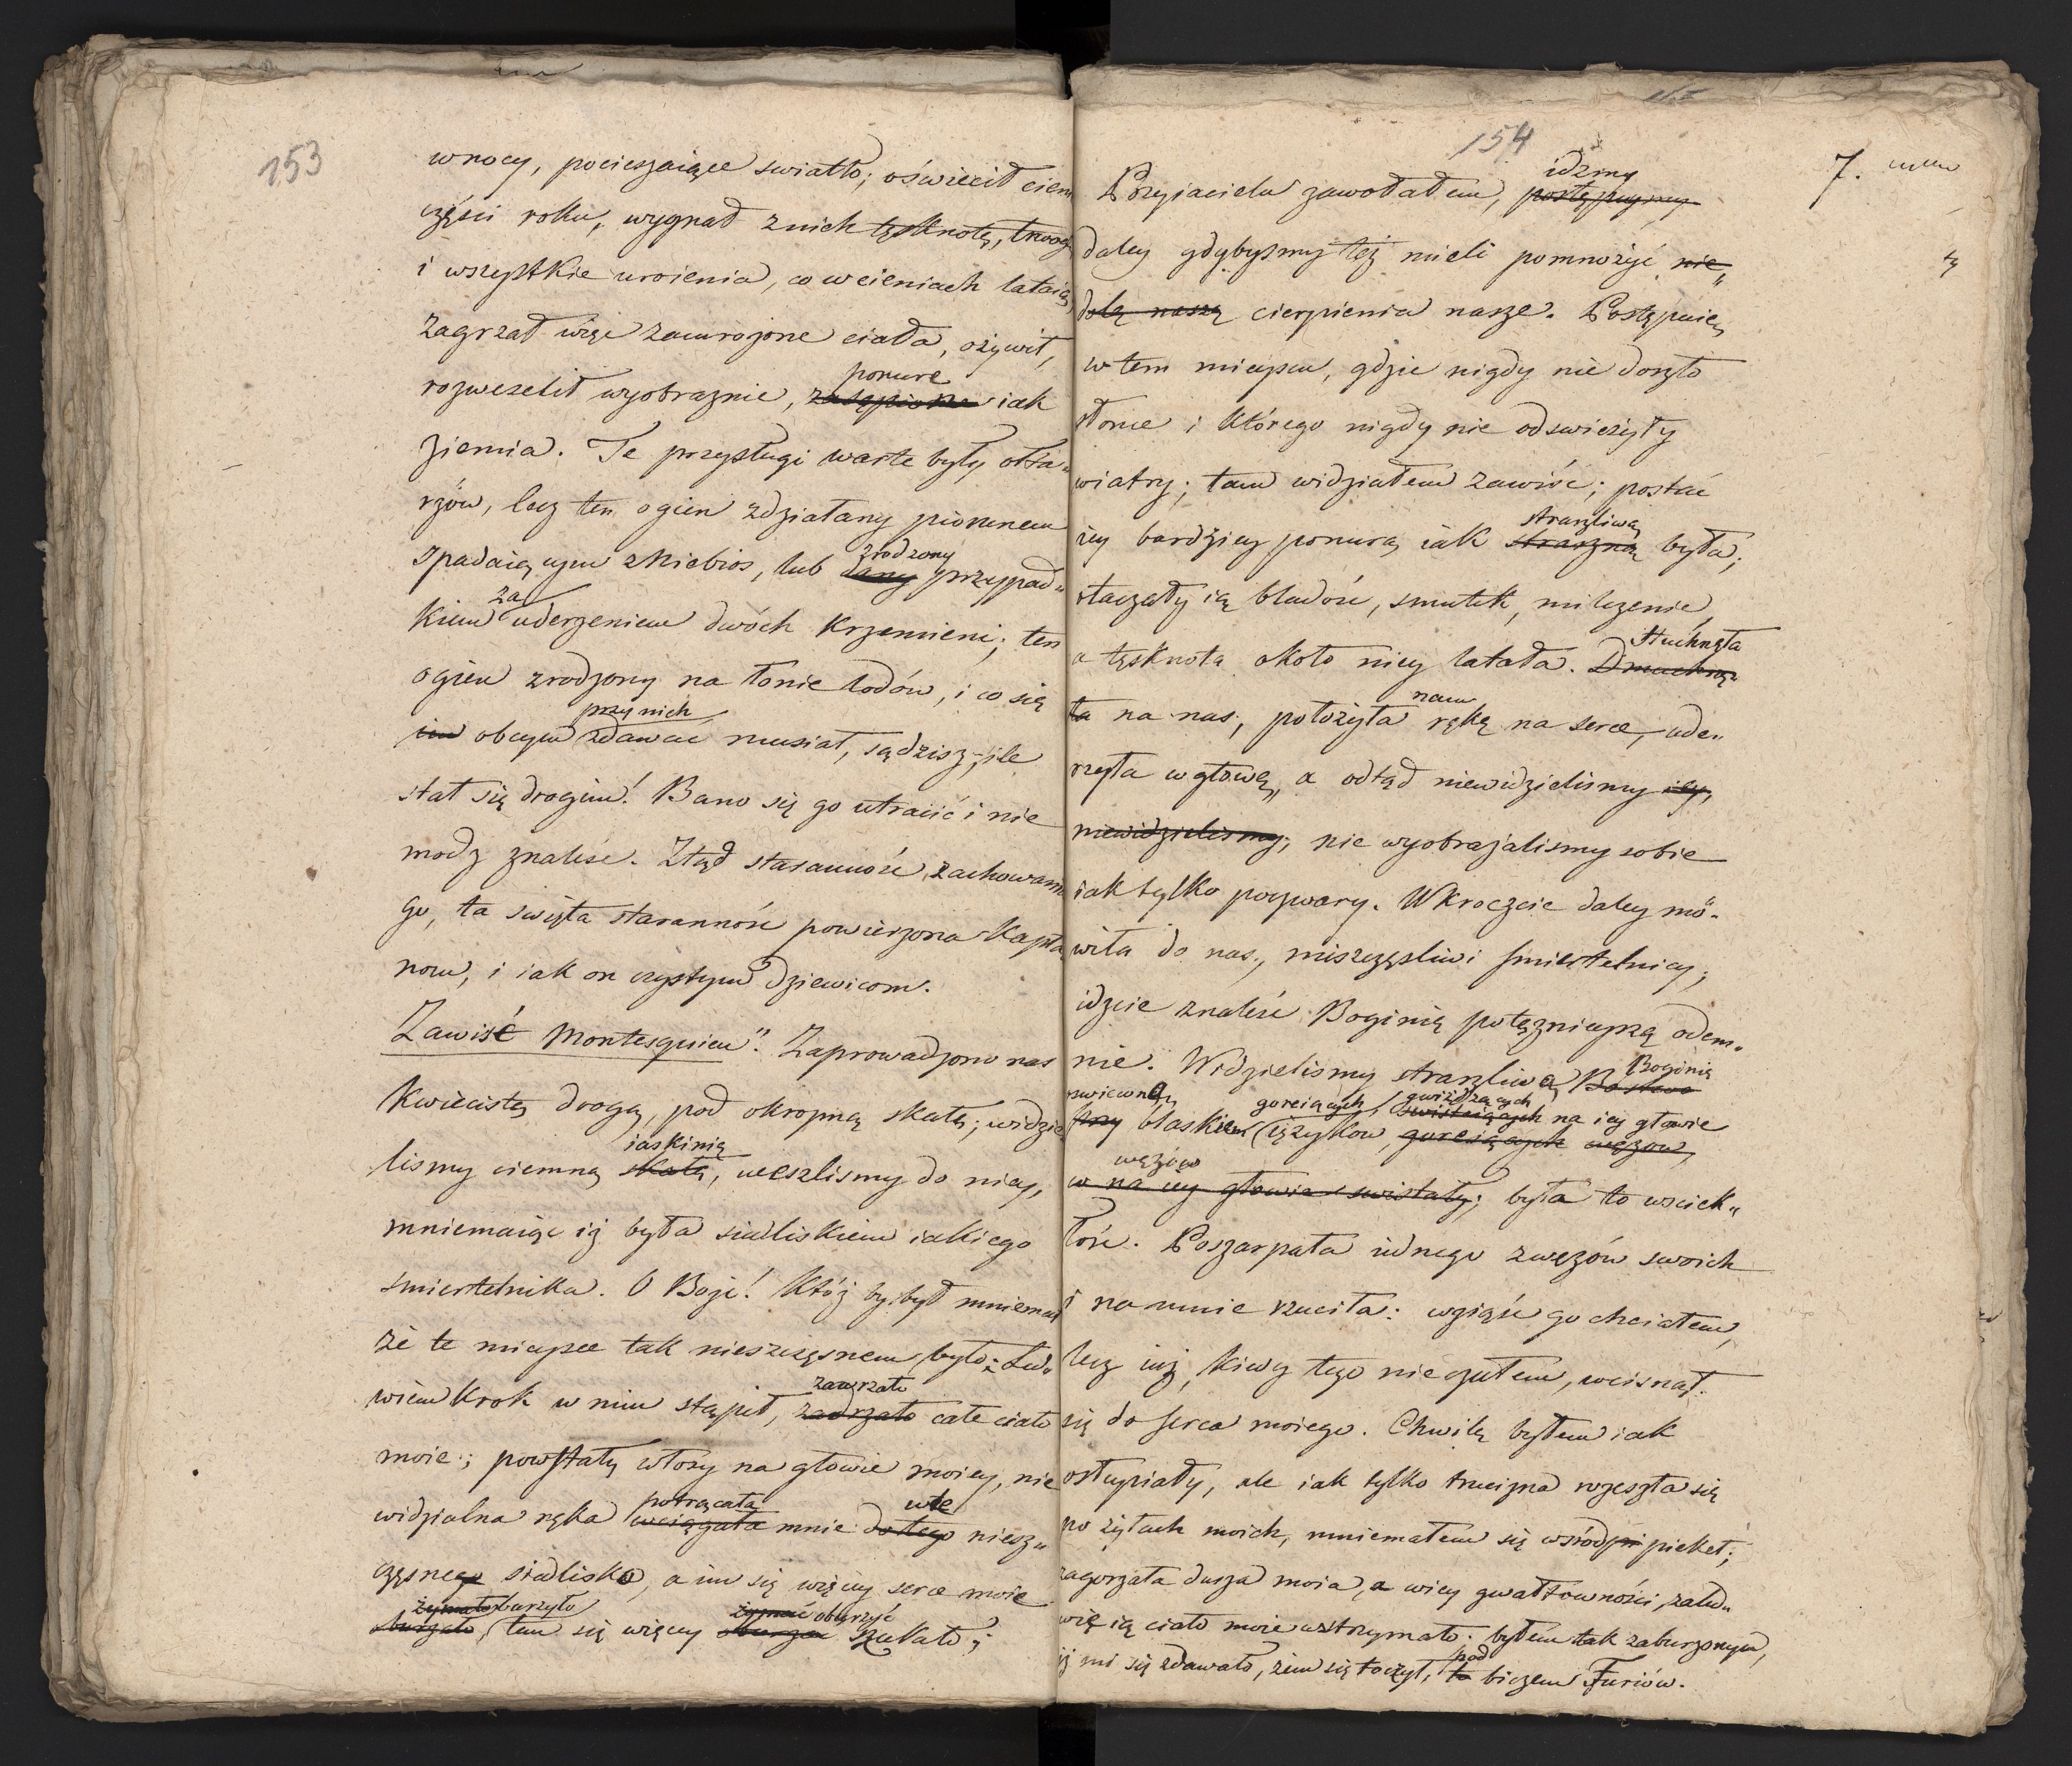 153
w nocy, pocieszaiące swiatło; oświecił ciem
części roku, wygnał z nich tęsknotę, trwog
i wszystkie uroienia, co w cieniach lataią,
Zagrzał więc zamrożone ciała, ożywił,
ponure
rozweselił wyobraznie, zasępione iak
ziemia. Te przysługi warte były ołta„
rzów, lecz ten ogien zdziałany piorunem
zrodzony
spadaiącym z Niebios, lub dany przypad„
za
kiem uderzeniem dwóch krzemieni; ten
ogień zrodzony na łonie lodów, i co się
przy nich
im obcym zdawac musiał, sądzisz, ile
stał się drogim! Bano się go utracić i nie
modz znaleść. Ztąd staranność zachowania
go, ta swięta staranność powierzona Kapła
nom, i iak on czystym Dziewicom.
Zawiść Montesquieu". Zaprowadzono nas
Kwiecistą drogą, pod okropną skałę; widzie
iaskinią
lismy ciemną skałę, weszlismy do niey,
mniemaiąc iż była siedliskiem iakiego
smiertelnika. O Boże! Któż by był mniemał
że te mieysce tak nieszczęsnem było: Led„
zawrzało
wiem krok w nim stąpił, zadrzało całe ciało
moie; powstały włosy na głowie moiey, nie
potrącała we
widzialna ręka wciągała mnie do tego niesz„
częsnego siedliska, a im się więcey serce moie
żymało burzyło żymać oburzyć
oburzało, tem się więcey szukało;
154
7.
idzmy
Przyiacielu zawołałem, postępuymy
daley gdybysmy też mieli pomnożyć nie„
dolę naszą cierpienia nasze. Postępuię
w tem mieyscu, gdzie nigdy nie doszło
słonce i którego nigdy nie odswieżyły
wiatry; tam widziałem zawiść; postać
straszliwą
iey bardziey ponurą iak straszną była;
otaczały ią bladość, smutek, milczenie,
Stuchnęła
a tęsknota około niey latała. Dmuchnę„
nam
ła na nas, położyła rękę na serce, ude„
rzyła w głowę, a odtąd niewidzielismy iey,
niewidzielismy; nie wyobrażalismy sobie
iak tylko poczwary. Wkroczcie daley mó„
wiła do nas, nieszczęsliwi smiertelnicy;
idzcie znaleść Boginię potęznieyszą odem„
Boginią
nie. Widzielismy straszliwą Bostwo
goreiących gwiżdżących
przy blaskiem ięzyków goreiących wężow, swisteiących na iey głowie
wężów
w na iey głowie swistały; była to wsciek„
łość. Poszarpała iednego z wężów swoich
i na mnie rzuciła: wziąść go chciałem,
lecz iuż, kiedy tego nie czułem, wcisnął
się do serca moiego. Chwilę byłem iak
osłupiały, ale iak tylko trucizna rozeszła się
po żyłach moich, mniemałem się wsród pi piekeł;
zagorzała dusza moia, a w iey gwałtowności, zaled„
wie ią ciało moie wstrzymało: byłem tak zaburzonym,
pod
iż mi się zdawało, żem się toczył, to biczem Furiów.